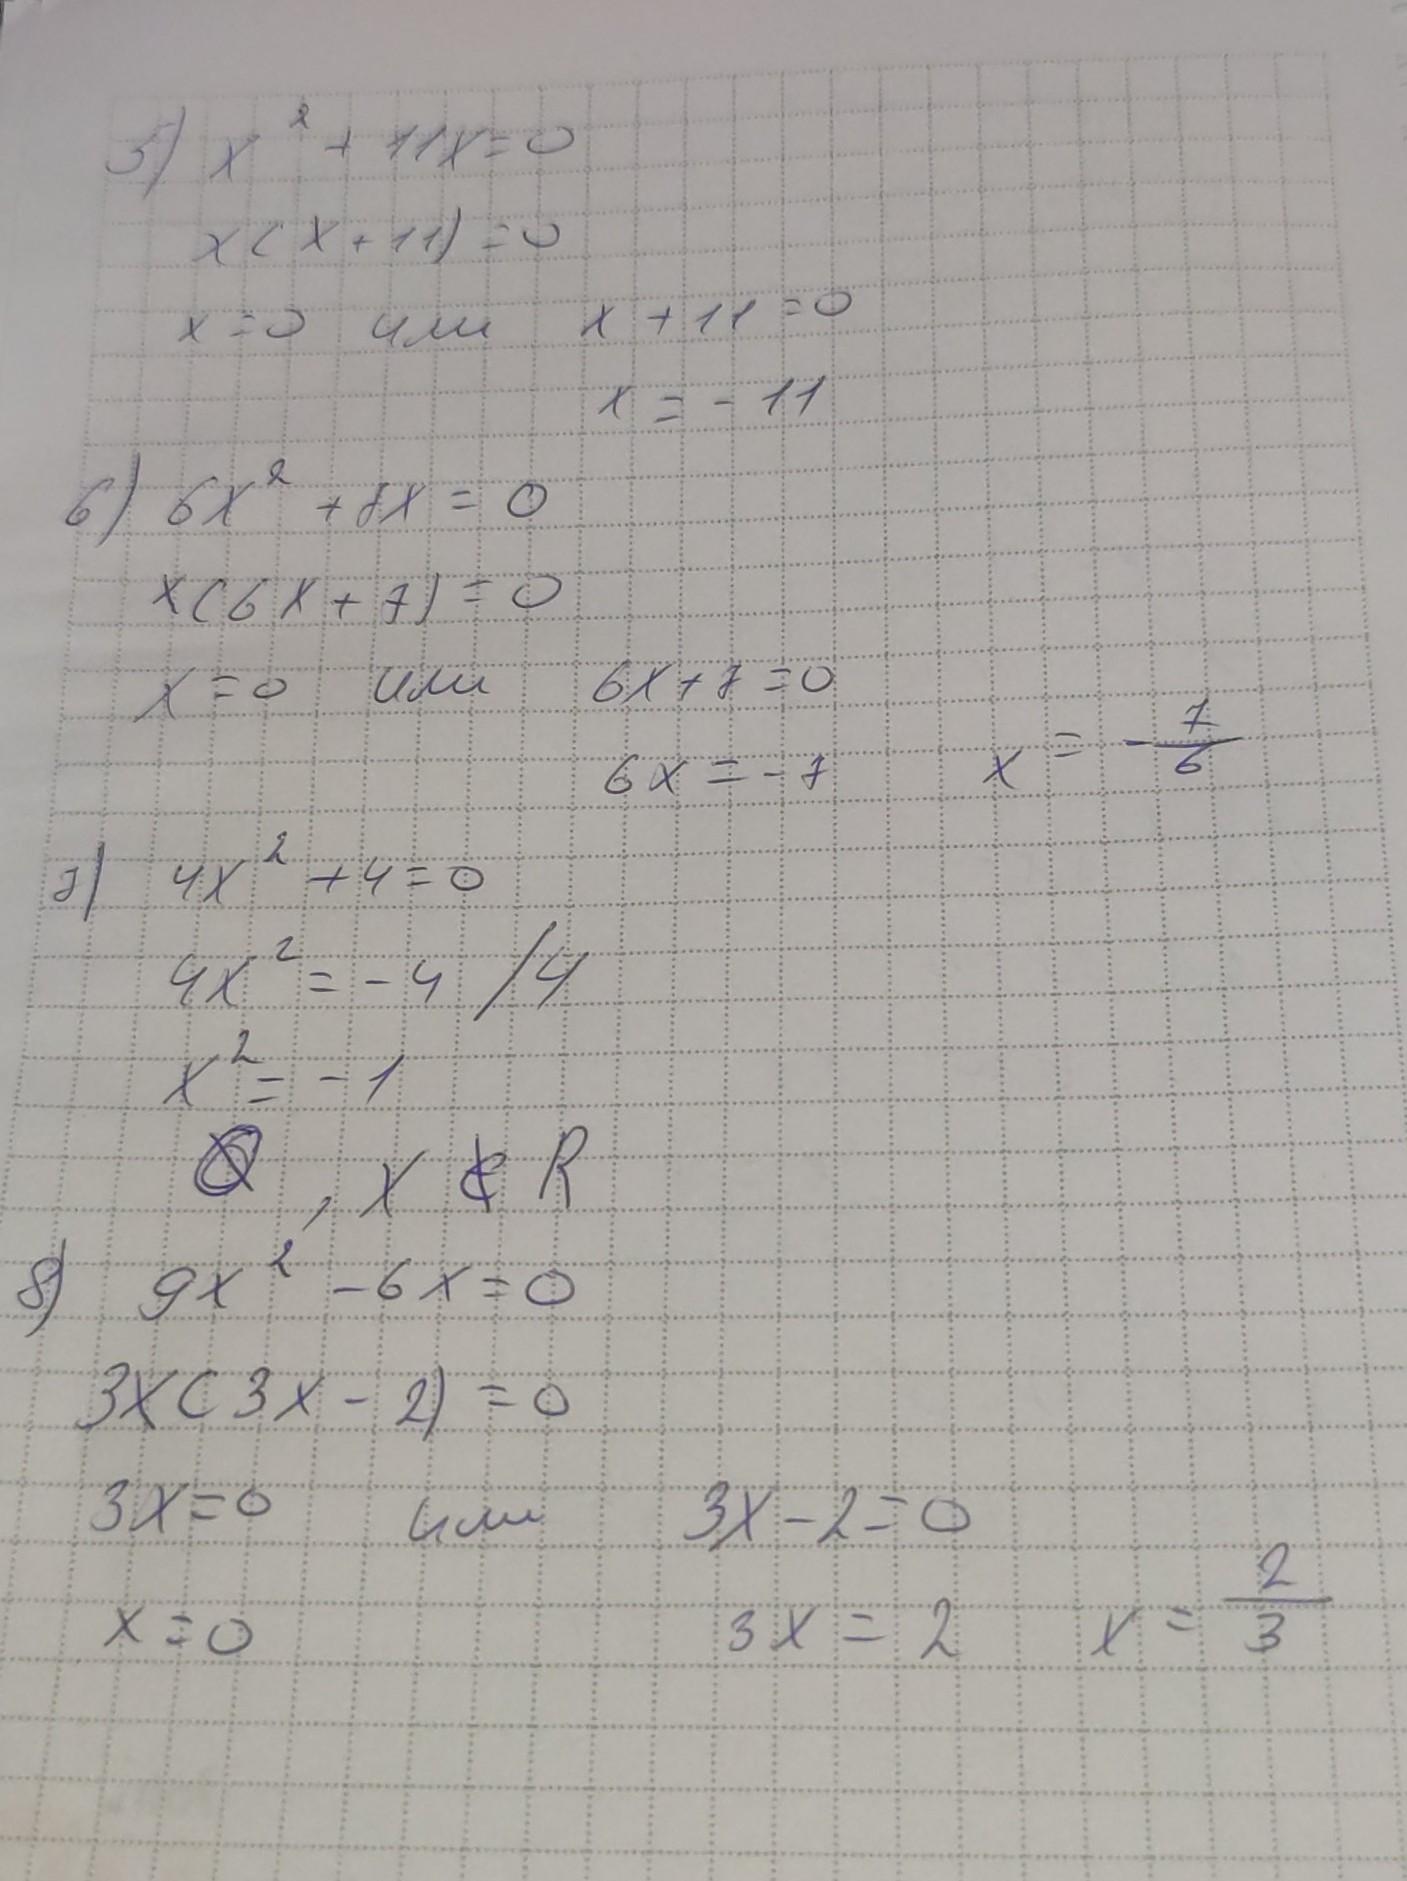 5) x² + 11x = 0
x(x + 11) = 0
x = 0 или x + 11 = 0
x = - 11
6) 6x² + 8x = 0
x(6x + 7) = 0
x = 0 или 6x + 7 = 0
6x = - 7 x = - 7/6
7) 4x² + 4 = 0
4x² = - 4 /4
x² = - 1
, x ∉ R
8) 9x² - 6x = 0
3x(3x - 2) = 0
3x = 0 или 3x - 2 = 0
x = 0 3x = 2 x = 2/3